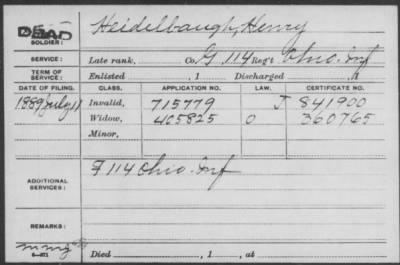 DEAD
SOLDIER: Heidelbaugh, Henry
SERVICE: Late rank, Co. G, 114 Reg't Ohio. Inf
TERM OF SERVICE: Enlisted , 1 Discharged , 1
DATE OF FILING. CLASS. APPLICATION NO. LAW. CERTIFICATE NO.
1889 July 11 Invalid, 715779 J 841900
Widow, 405825 O 360765
Minor,
ADDITIONAL SERVICES: F 114 Ohio. Inf
REMARKS:
Died , 1 , at